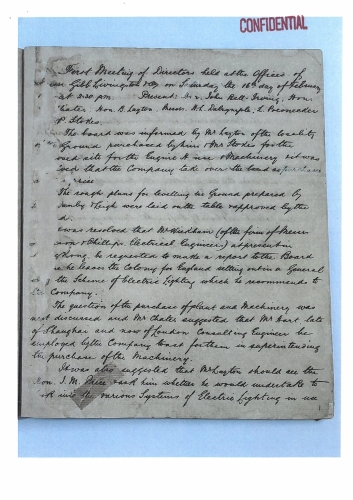 CONFIDENTIAL
First Meeting of Directors held at the Offices of
Gibb Livingston & Co on Saturday the 16th day of February
at 2.30 pm. Present: John Bell-Irving, Hon.
Chater, Hon. B. Layton, Messrs. H. L. Dalrymple, L. Poesnecker
P. Stokes.
The board was informed by Mr Layton of the locality
Ground purchased by him & Mr Stokes for the
site for the Engine House & Machinery & it was
that the Company take over the land
The rough plans for levelling the Ground prepared by
Danby & Leigh were laid on the table & approved by the
was resolved that Mr Wickham (of the firm of Messrs
& Phillips Electrical Engineers) at present in
be requested to make a report to the Board
he leaves the Colony for England setting out in a General
the Scheme of Electric Lighting which he recommends to
Company.
The question of the purchase of plant and Machinery was
discussed and Mr Chater suggested that Mr Hart late
of Shanghai and now of London Consulting Engineer be
employed by the Company to act for them in superintending
the purchase of the Machinery.
It was also suggested that Mr Layton should see the
Hon. J. M. Price & ask him whether he would undertake to
look into the various Systems of Electric Lighting in use